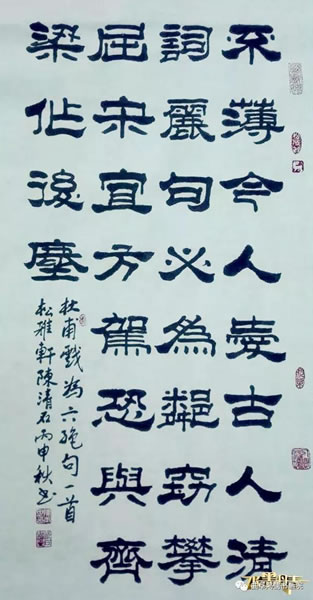 不薄今人愛古人清
詞麗句必為鄰窃攀
屈宋宜方駕恐與齊
梁作後塵
杜甫戲為六絕句一首
松雅軒陳清石丙申秋书